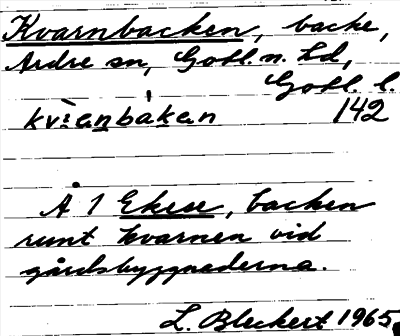 Kvarnbacken, backe,
Ardre sn, Gotl. n. hd,
Gotl. l.
142
Å 1 Ekese, backen
runt kvarnen vid
gårdsbyggnaderna.
L. Bleckert 1965